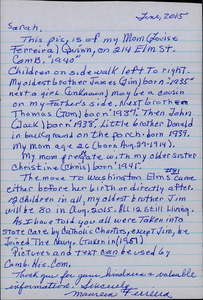 June, 2015
Sarah,
This pic, is of my Mom (Louise
Ferreira) Quinn, on 214 Elm St.
Camb. "1940"
Children on side walk left to right.
My oldest brother James (Jim) born "1935"
next a girl (unknown) may be a cousin
on my Father's side. Next brother
Thomas (Tom) born "1937". Then John
(Jack) born "1938". Little brother Donald
in background on the porch. born 1939.
My mom age 26 (born Aug. 27-1914).
My mom pregnate with my older sister
Christine (Chris) born "1941".
The move to Washington Elms came
either before her birth or directly after.
12 children in all, my oldest brother Jim
will be 80 in (Aug 2015). All 12 still living.
As I have told you all were taken into
State care by Catholic Charties, except Jim, he
Joined The Navy. (taken in (1951)
Pictures and text can be used by
Camb. His. Com,
Thank you for your kindness & valuable
information. Sincerly
Maureen Ferreira